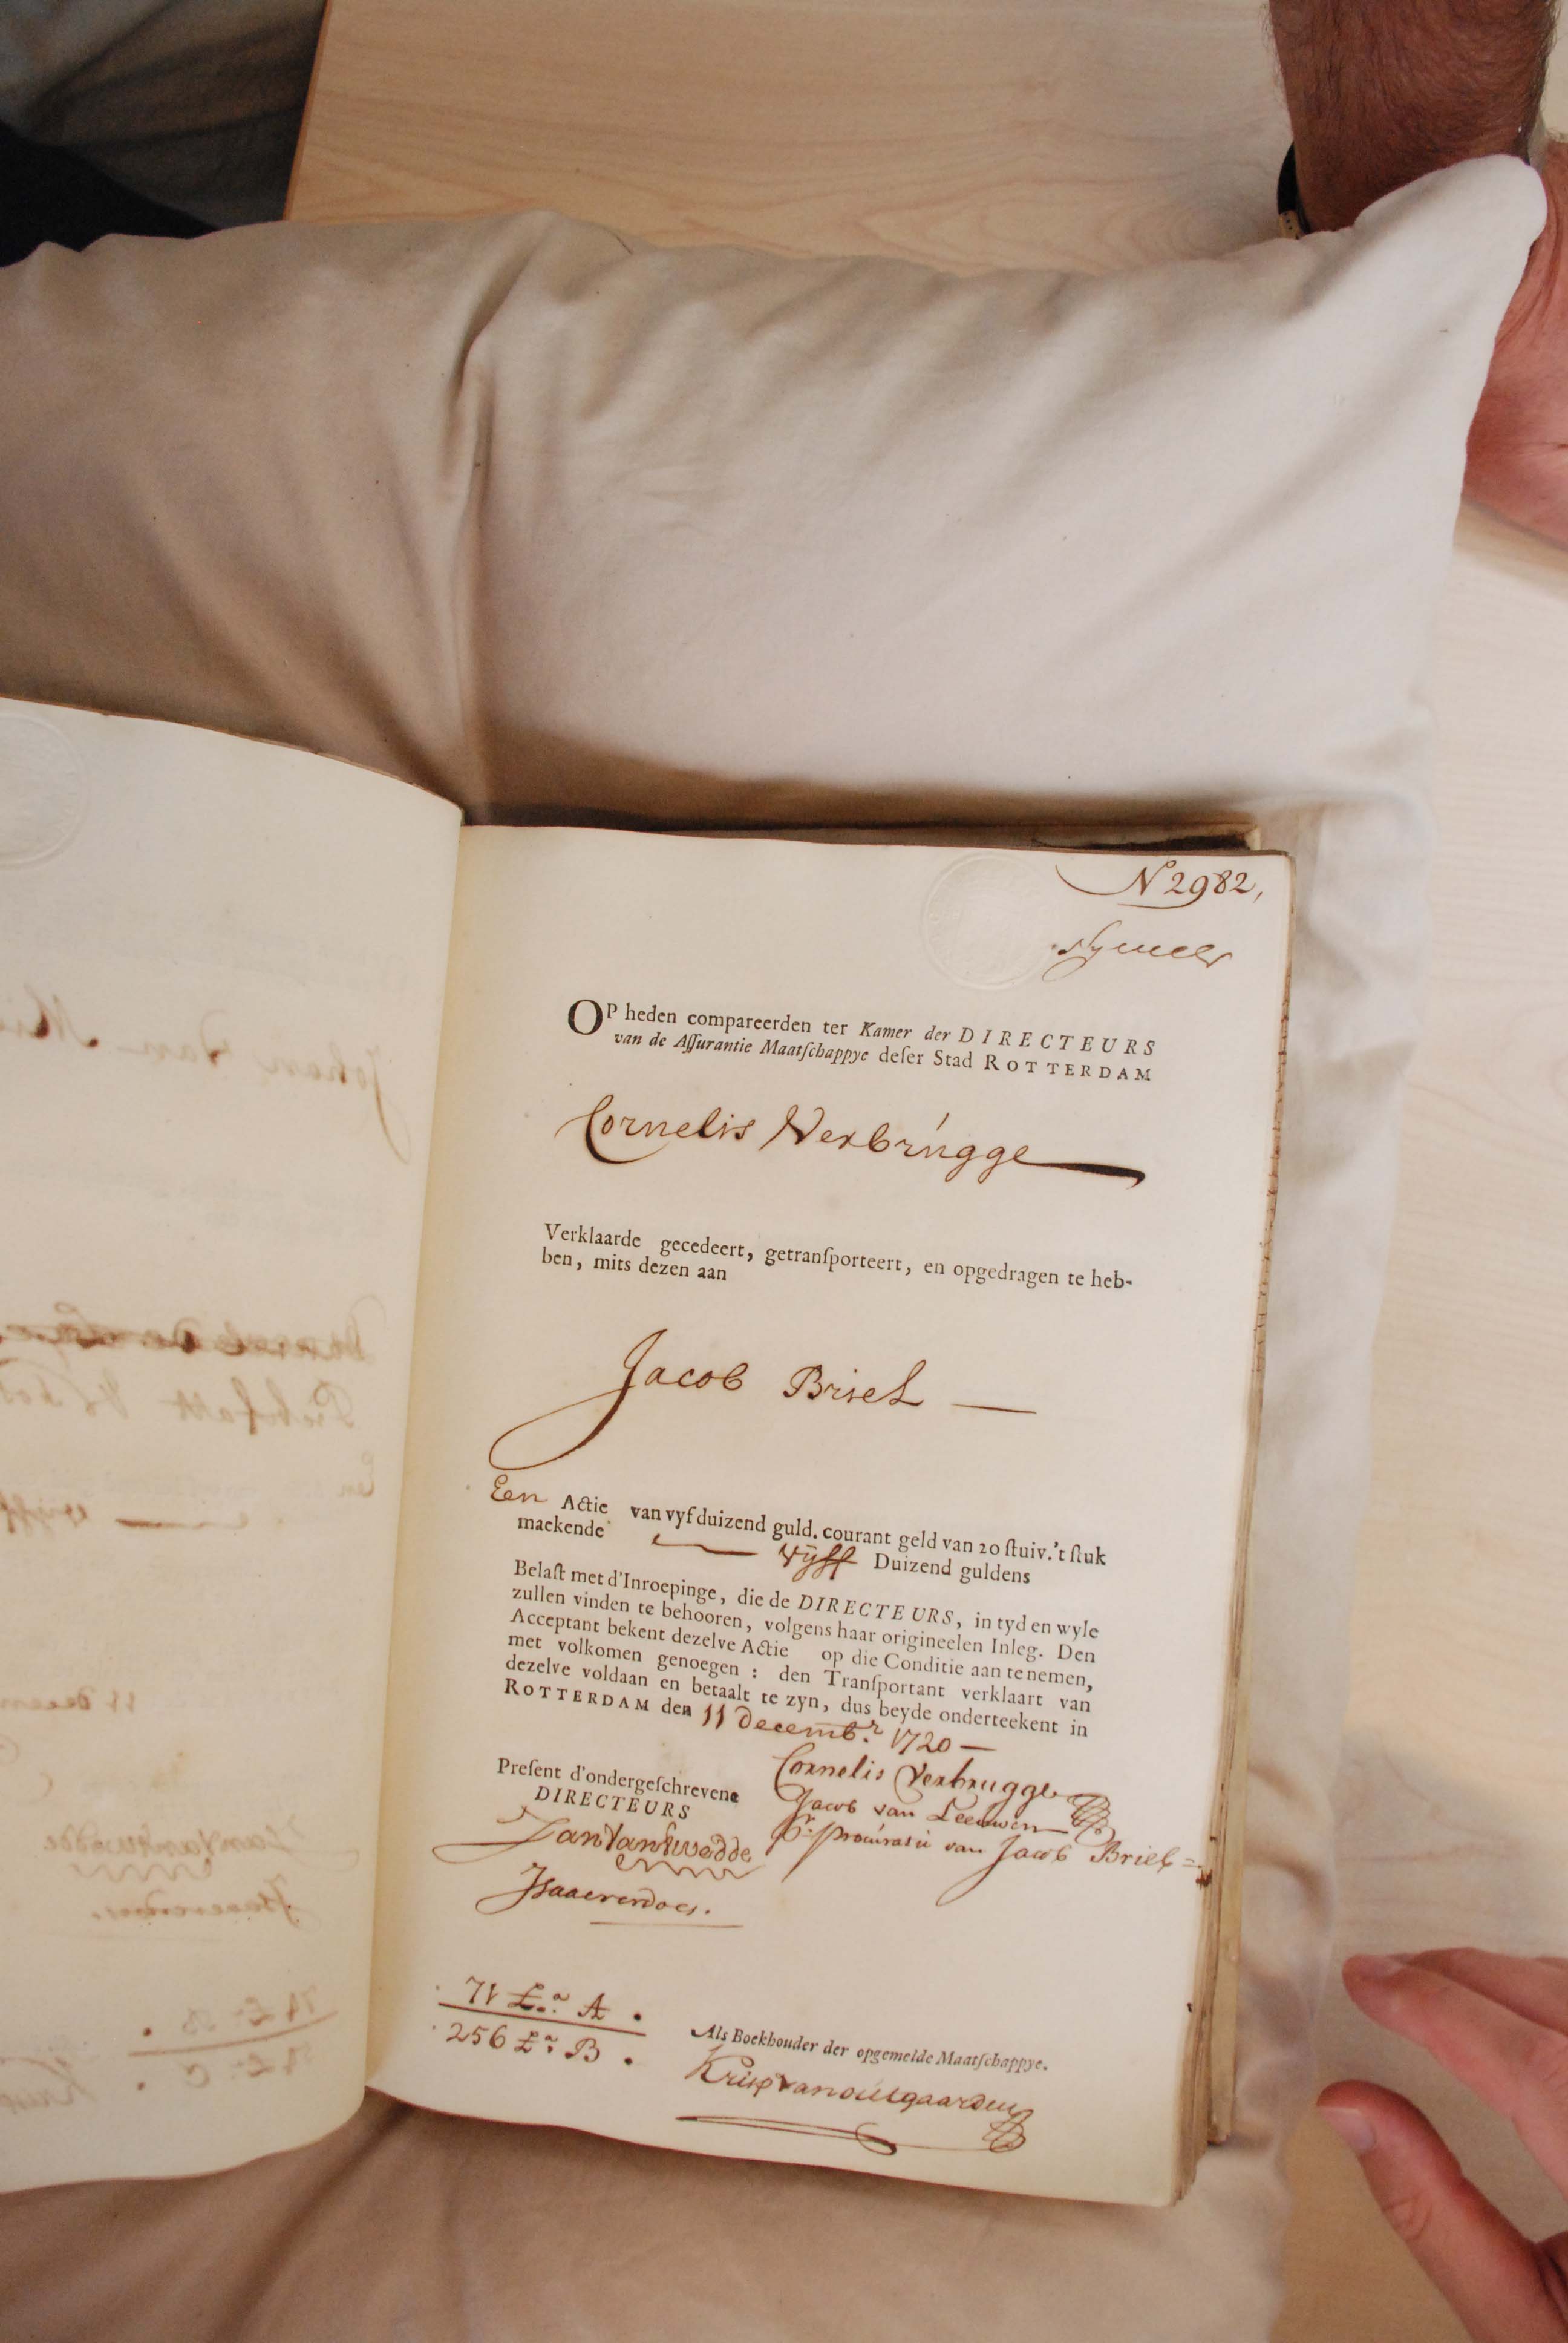 N 2982,
OP heden compareerden ter Kamer der DIRECTEURS
van de Aſſurantie Maatſchappye deſer Stad ROTTERDAM
Cornelis Verbrugge
Verklaarde gecedeert, getranſporteert, en opgedragen te heb-
ben, mits dezen aan
Jacob Briel
Een Actie van vyf duizend guld. courant geld van 20 ſtuiv. 't ſtuk
maekende vyff Duizend guldens
Belaſt met d'Inroepinge, die de DIRECTEURS, in tyd en wyle
zullen vinden te behooren, volgens haar origineelen Inleg. Den
Acceptant bekent dezelve Actie op die Conditie aan te nemen,
met volkomen genoegen : den Tranſportant verklaart van
dezelve voldaan en betaalt te zyn, dus beyde onderteekent in
ROTTERDAM den 11 decembr. 1720 —
Cornelis Verbrugge
Preſent d'ondergeſchrevene
DIRECTEURS
Jacob van Leeuwen
pr. procuratie van Jacob Briel
71 La. A.
256 La. B.
Als Boekhouder der opgemelde Maatſchappye.